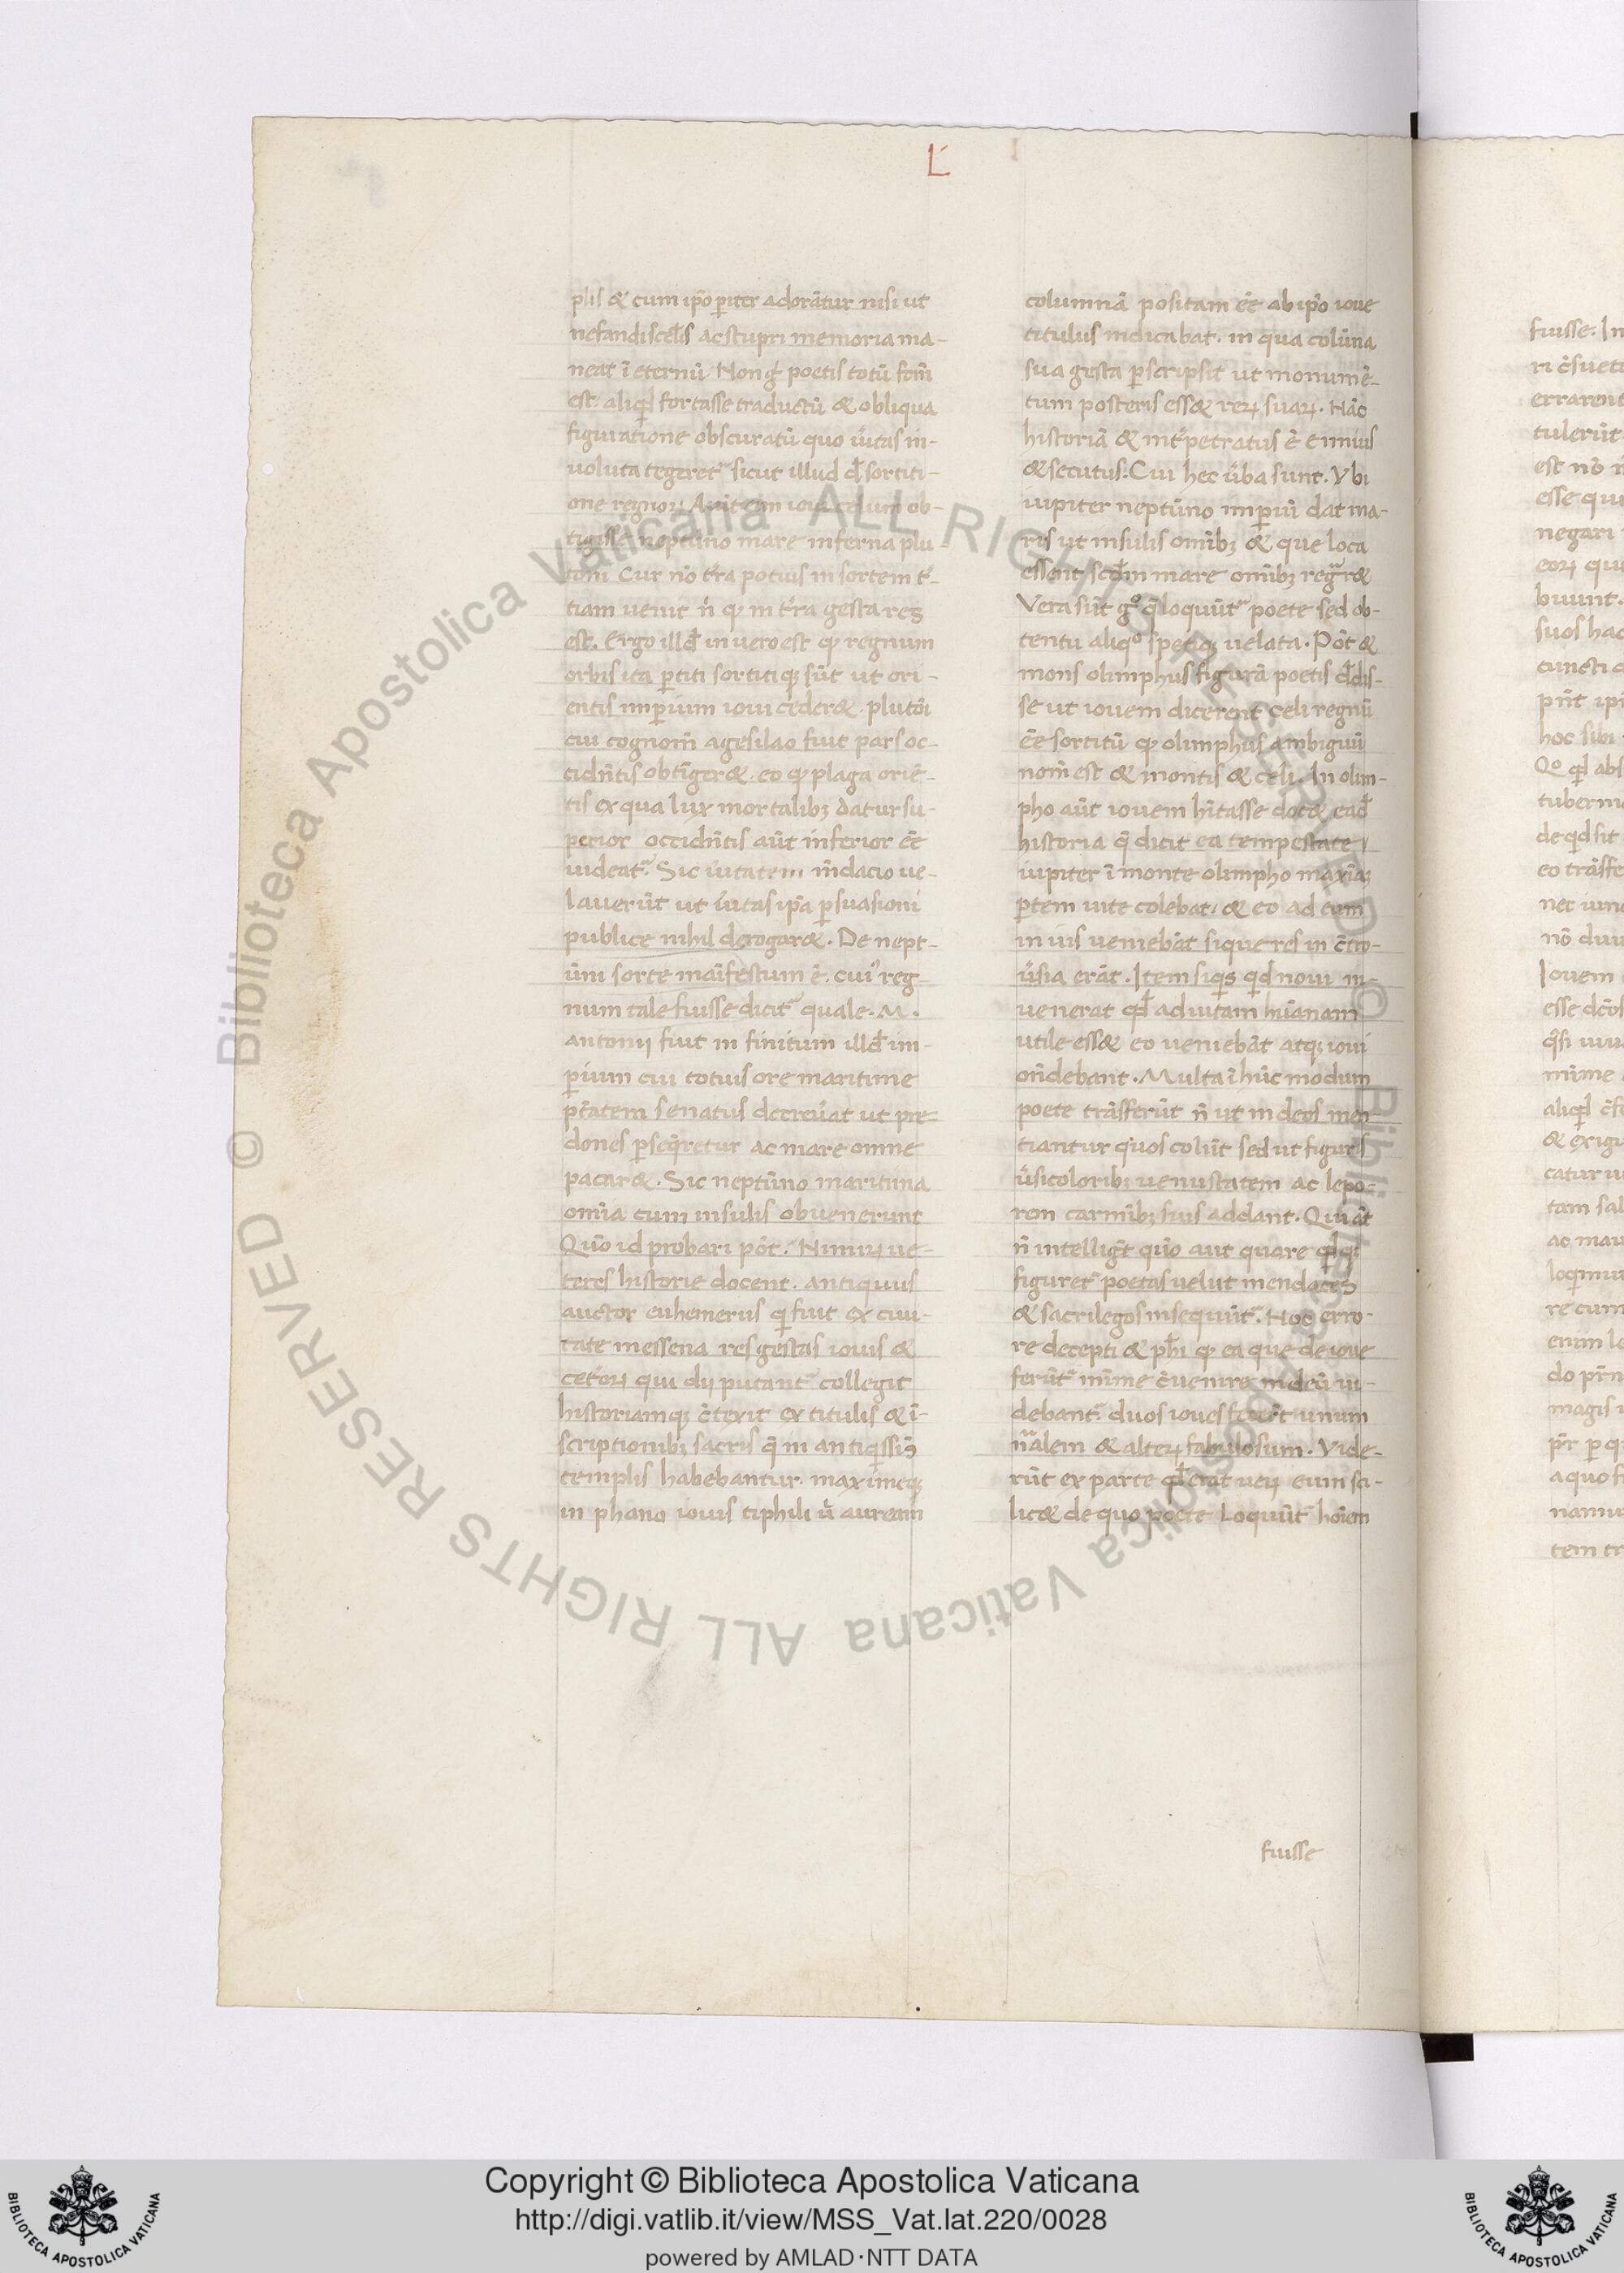 L
plis & cum ip̄o pariter adorātur nisi ut
nefandi scel̄is ac stupri memoria ma-
neat ī eternū. Non g̊ poetis totū fcm̄
est. aliqd fortasse traductū & obliqua
figuratione obscuratū quo ūitas in-
uoluta tegeret sicut illud d̄ sortiti-
one regnoꝝ. Aiūt enim ioui celum ob-
tigisse neptūno mare inferna plu-
toni. Cur nō t̄ra potius in sortem t̄-
tiam uenit n̄ ꝙ in t̄ra gesta res
est. Ergo illd̄ in uero est ꝙ regnum
orbis ita ꝑtiti sortitiqꝫ sūt ut ori-
entis imꝑium ioui céder&. plutōi
cui cognom̄ agesilao fuit pars oc-
cidn̄tis obtīger&. eo ꝙ plaga oriē-
tis ex qua lux mortalibꝫ datur su-
perior occidn̄tis aūt inferior eē
uideat. Sic ūitatem m̄dacio ue-
lauerūt ut ūitas ip̄a ꝑsuasioni
publice nihil derogar&. De nept-
ūni sorte maīfestum ē. cui reg-
num tale fuisse dicit quale. M.
antonij fuit in finitum illd̄ im-
ꝑium cui totius ore maritime
ptātem senatus decreūat ut pre-
dones ꝑseq̄retur ac mare omne
pacar&. Sic neptūno maritima
omīa cum insulis obuenerunt
Quō id probari pōt. Nimiꝝ ue-
teres historie docent. antiquus
auctor euhemerus qi fuit ex ciui-
tate messena res gestas iouis &
ceteroꝝ qui dij putant collegit
historiamqꝫ c̄texit ex titulis & ī-
scriptionibꝫ sacris q̄ in antiqissis
templis habebantur. maximeqꝫ
in phano iouis tiphili ū auream
columnā positam eē ab ip̄o ioue
titulus indicabat. in qua colūna
sua gesta ꝑscripsit ut monumē-
tum posteris ess& reꝝ suaꝝ. Hāc
historiā & int̄petratus ē ennius
& secutus. Cui hec ūba sunt. Ybi
iupiter neptūno imꝑiū dat ma-
ris ut insulis omībꝫ & que loca
essent scdm̄ mare omībꝫ regnar&
Vera sūt g̊ q̄ loquūt poete sed ob-
tentu aliqo speciqꝫ uelata. Pōt &
mons olimphus figurā poetis d̄dis-
se ut iouem dicerent celi regnū
eē sortitū ꝙ olimphus ambiguū
nom̄ est & montis & celi. In olim-
pho aūt iouem hītasse doc& ead̄
historia q̄ dicit ea tempestate
iupiter ī monte olimpho maxīaꝫ
ꝑtem uite colebat. & eo ad eum
in ius ueniebāt sique res in c̄tro-
ūsia erāt. Item siqis qid noui in-
uenerat qd̄ ad uitam hūanam
utile ess& eo ueniebāt atqꝫ ioui
on̄debant. Multa ī hūc modum
poete trāsferūt n̄ ut in deos men-
tiantur quos colūt sed ut figuris
ūsicoloribꝫ uenustatem ac lepo-
rem carmībꝫ suis addant. Qui āt
n̄ intelligūt quō aut quare qdqꝫ
figuret poetas uelut mendaces
& sacrilegos insequūt. Hoc erro-
re decepti & phi ꝙ ea que de ioue
ferūt mīme c̄uenire in deū ui-
debant. duos ioues fecerūt unum
nālem & alteꝝ fabulosum. Vide-
rūt ex parte qd̄ erat ueꝝ eum sci-
lic& de quo poete loquūt hoīem
fuisse
fuisse. In
errarent
tulerūt
esse qui
negari
suos hac
cuncti
hoc sibi
Iouem
mīme
catur
tam sal
ac mau
re cum
enim
magis
a quo
tem tr
© Biblioteca Apostolica Vaticana ALL RIGHTS RESERVED
© Biblioteca Apostolica Vaticana ALL RIGHTS RESERVED
Copyright © Biblioteca Apostolica Vaticana
http://digi.vatlib.it/view/MSS_Vat.lat.220/0028
powered by AMLAD·NTT DATA
BIBLIOTECA APOSTOLICA VATICANA
BIBLIOTECA APOSTOLICA VATICANA